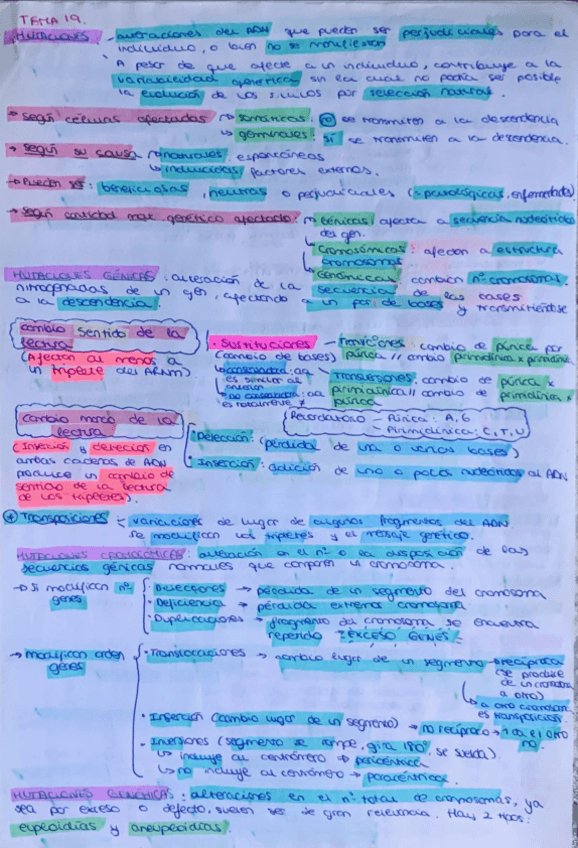 TEMA 19.
MUTACIONES - alteraciones del ADN que pueden ser perjudiciales para el
individuo, o bien no se manifiestan
A pesar de que afecte a un individuo, contribuye a la
variabilidad genética sin la cual no podría ser posible
la evolución de los por selección natural.
→ Según células afectadas somáticas: no se transmiten a la descendencia
germinales: sí se transmiten a la descendencia.
→ Según su causa naturales. espontáneas
inducidas factores externos.
→ Pueden ser: beneficiosas, neutras o perjudiciales (patológicas, enfermedades)
→ Según cantidad mat. genético afectado: Génicas: afecta a secuencia nucleótidos
del gen.
Cromosómicas: afectan a estructura
cromosomas
Genómicas: cambian nº cromosomas.
MUTACIONES GÉNICAS: alteración de la secuencia de las bases
nitrogenadas de un gen, afectando a un par de bases y transmitiéndose
a la descendencia.
cambio sentido de la
lectura
(Afectan al menos a
un triplete del ARNm)
• Sustituciones (cambio de bases)
Transiciones: cambio de púrica por
púrica // cambio pirimidínica x pirimidínica
conservadora: aa
es similar al
anterior
no conservadora: aa
es totalmente ≠
Transversiones: cambio de púrica x
pirimidínica // cambio de pirimidínica x
púrica
Recordatorio - Púrica: A, G
- Pirimidínica: C, T, U
cambio marco de la
lectura
(Inserción y deleción en
ambas cadenas de ADN
produce un cambio de
sentido de la lectura
de los tripletes).
• Deleción: (pérdida de una o varias bases)
• Inserción: adición de uno o pocos nucleótidos al ADN
* Transposiciones variaciones de lugar de algunos fragmentos del ADN.
Se modifican los tripletes y el mensaje genético.
MUTACIONES CROMOSÓMICAS: alteración en el nº o la disposición de las
secuencias génicas normales que comparten un cromosoma.
→ Si modifican nº
genes
• Deleciones → pérdida de un segmento del cromosoma
• Deficiencia → pérdida extremo cromosoma
• Duplicaciones → fragmento del cromosoma se encuentra
repetido EXCESO GENES
→ modifican orden
genes
• Translocaciones → cambio lugar de un segmento → recíproca
(se produce
de un cromosoma
a otro)
a otro cromosoma
es transposición.
• Inserción (cambio lugar de un segmento) → no recíproca → 1 da, el otro
no.
• Inversiones (segmento se rompe, gira 180º, se suelda).
incluye al centrómero → pericéntrica
no incluye al centrómero → paracéntrica.
MUTACIONES GENÓMICAS: alteraciones en el nº total de cromosomas, ya
sea por exceso o defecto, suelen ser de gran relevancia. Hay 2 tipos:
euploidías y aneuploidías.